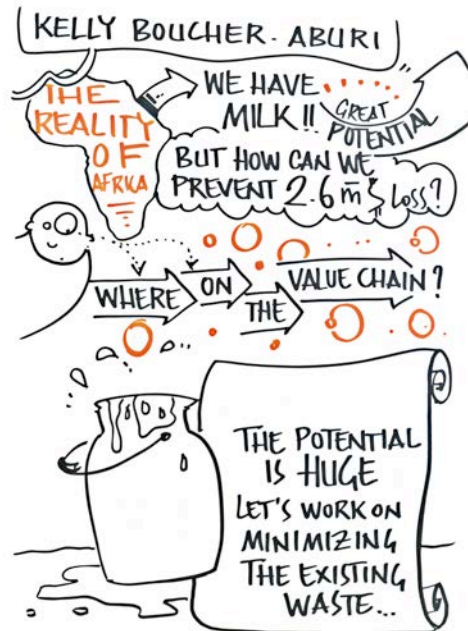 KELLY BOUCHER - ABURI
THE
REALITY
OF
AFRICA
WE HAVE
MILK!!
GREAT
POTENTIAL
BUT HOW CAN WE
PREVENT 2.6 m LOSS?
WHERE ON THE VALUE CHAIN?
THE POTENTIAL
IS HUGE
LET'S WORK ON
MINIMIZING
THE EXISTING
WASTE...